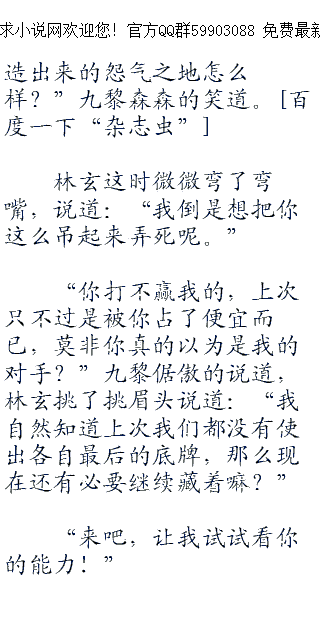 求小说网欢迎您！官方QQ群59903088 免费最新
造出来的怨气之地怎么
样？”九黎森森的笑道。[百
度一下“杂志虫”]
林玄这时微微弯了弯
嘴，说道：“我倒是想把你
这么吊起来弄死呢。”
“你打不赢我的，上次
只不过是被你占了便宜而
已，莫非你真的以为是我的
对手？”九黎倨傲的说道，
林玄挑了挑眉头说道：“我
自然知道上次我们都没有使
出各自最后的底牌，那么现
在还有必要继续藏着嘛？”
“来吧，让我试试看你
的能力！”